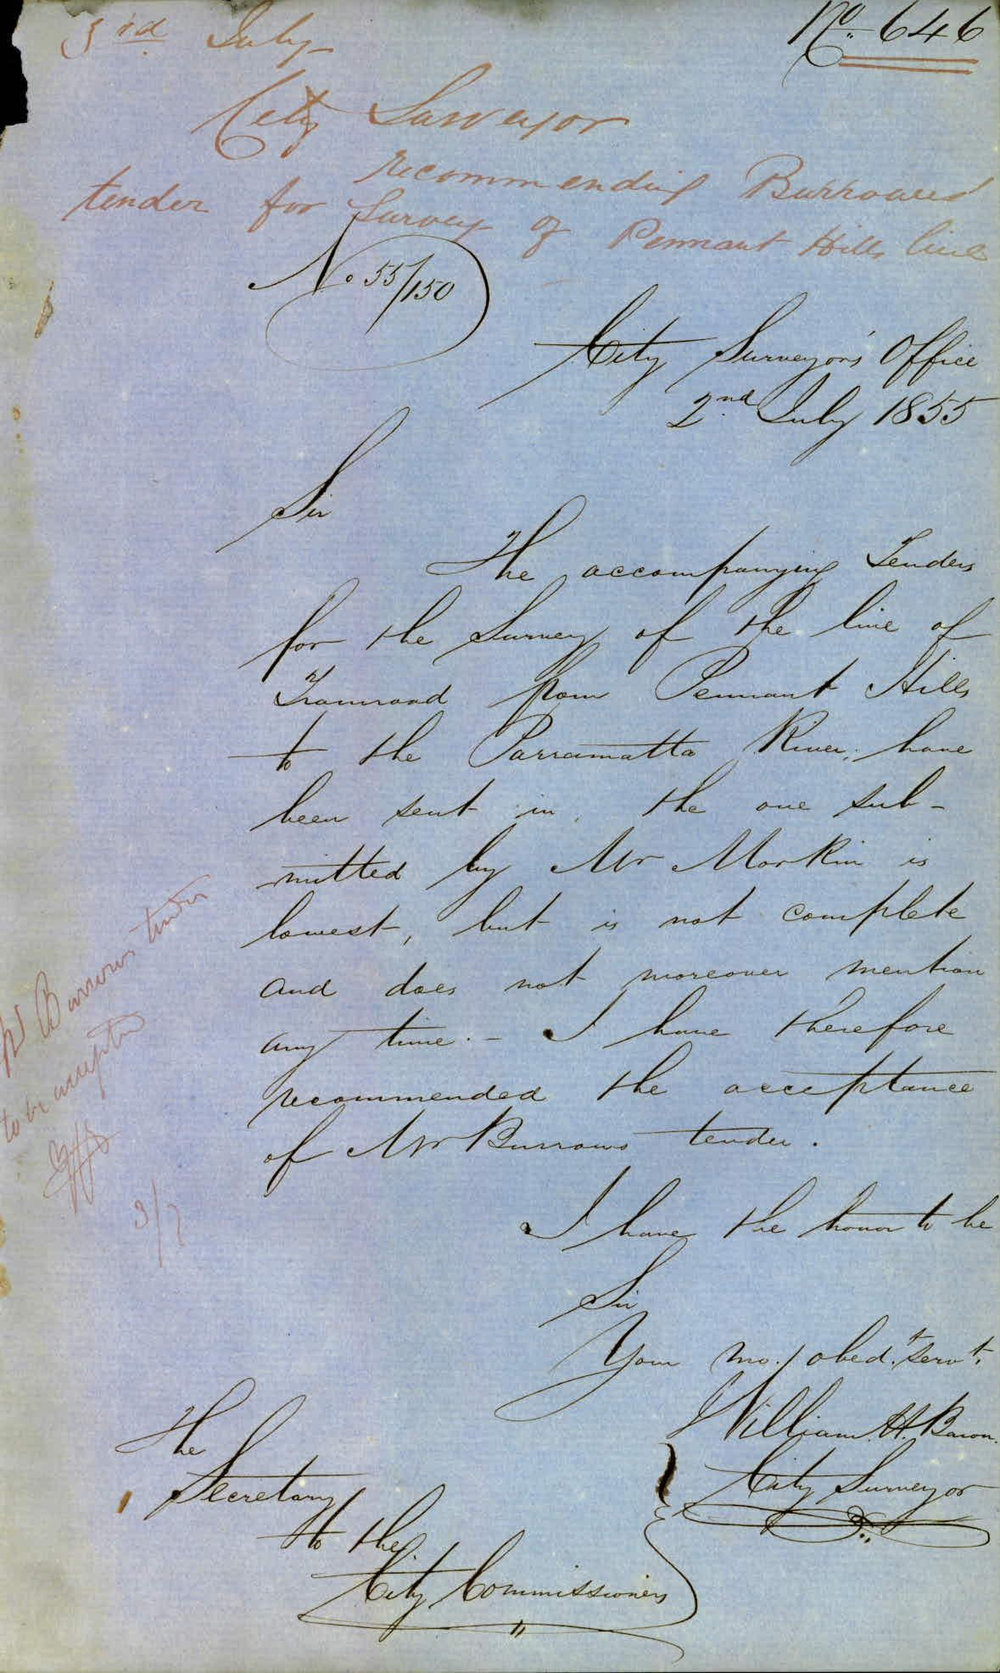 No. 646
3rd July
City Surveyor
recommending Burrowes
tender for Survey of Pennant Hills line
No 55/150
City Surveyor's Office
2nd July 1855
Sir
The accompanying Tenders
for the Survey of the line of
Tramroad from Pennant Hills
to the Parramatta River, have
been sent in, the one sub-
mitted by Mr Markin is
lowest, but is not complete
and does not moreover mention
any time. - I have therefore
recommended the acceptance
of Mr Burrows tender.
Mr Burrows tender
to be accepted
3/7
I have the honor to be
Sir
Your mo. obedt. servt.
William. H. Baron.
City Surveyor
The
Secretary
to the
City Commissioners